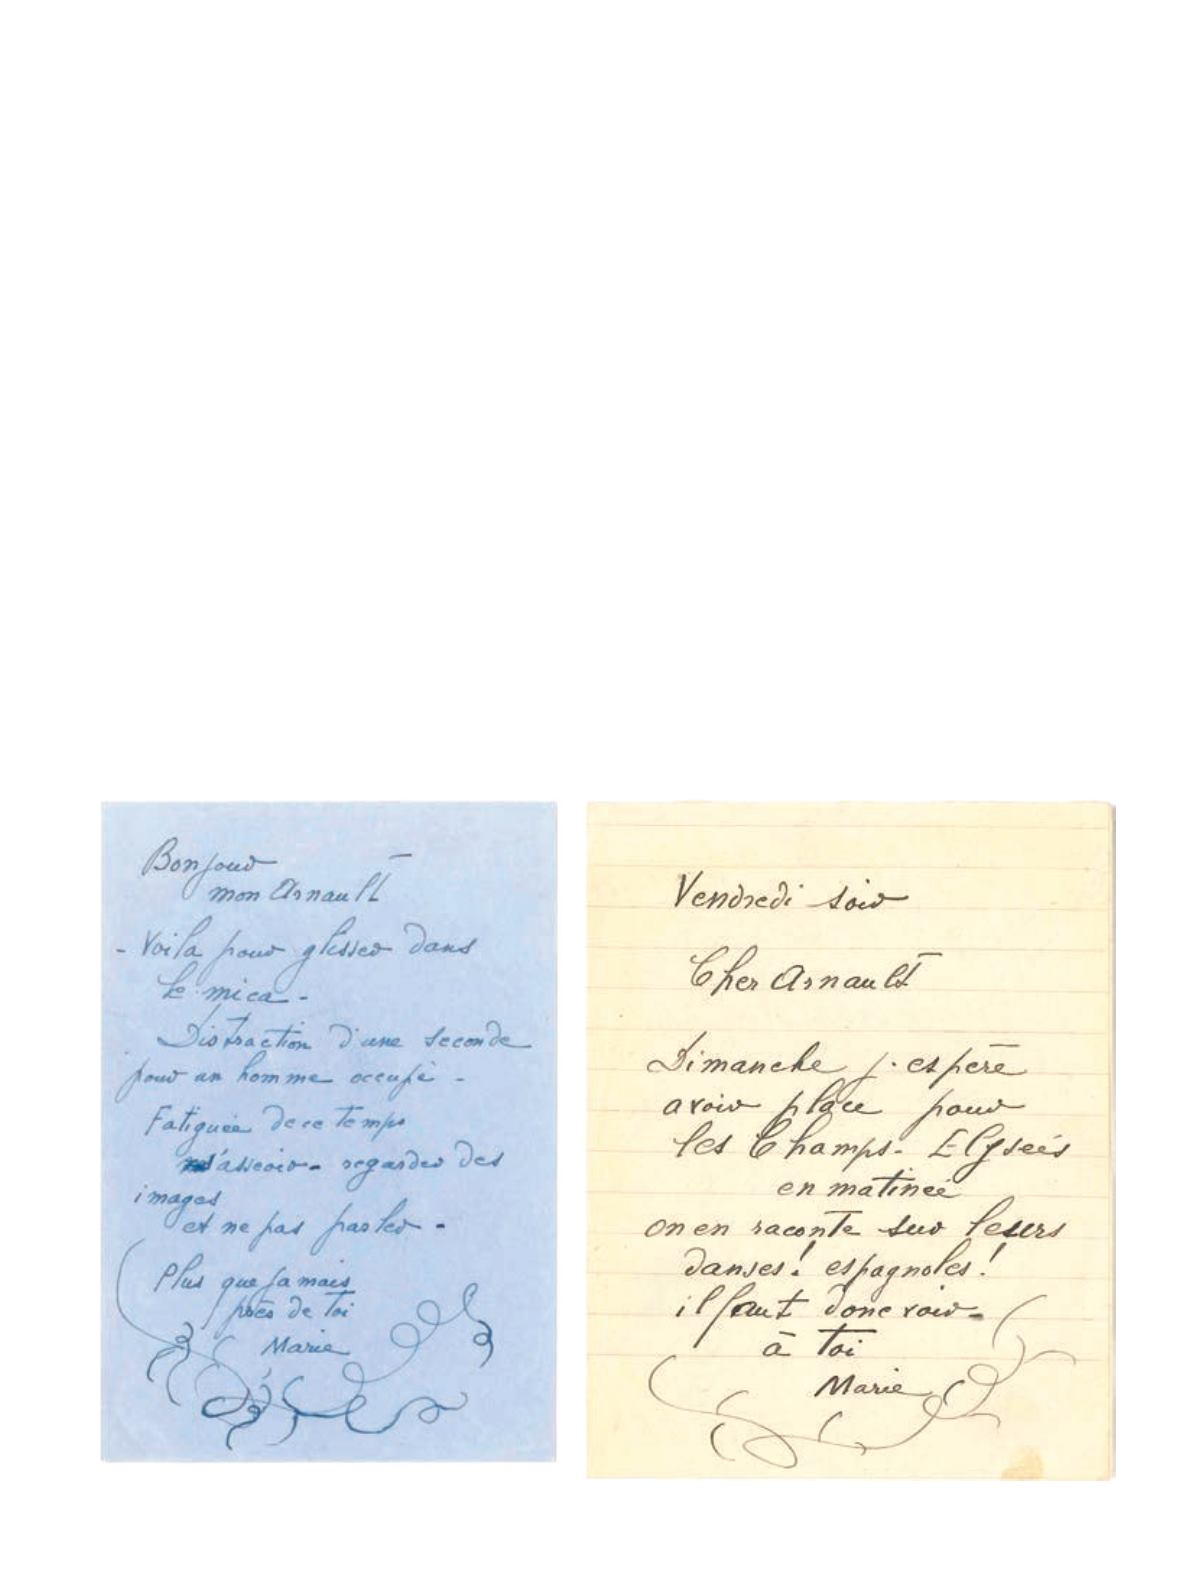 Bonjour
mon Arnault
- Voila pour glisser dans
le mica -
Distraction d'une seconde
pour un homme occupé -
Fatiguée de ce temps
s'asseoir - regarder des
images
et ne pas parler -
Plus que jamais
près de toi
Marie
Vendredi soir
Cher Arnault
Dimanche j'espère
avoir place pour
les Champs-Elysées
en matinée
on en raconte sur leurs
danses! espagnoles!
il faut donc voir -
à toi
Marie